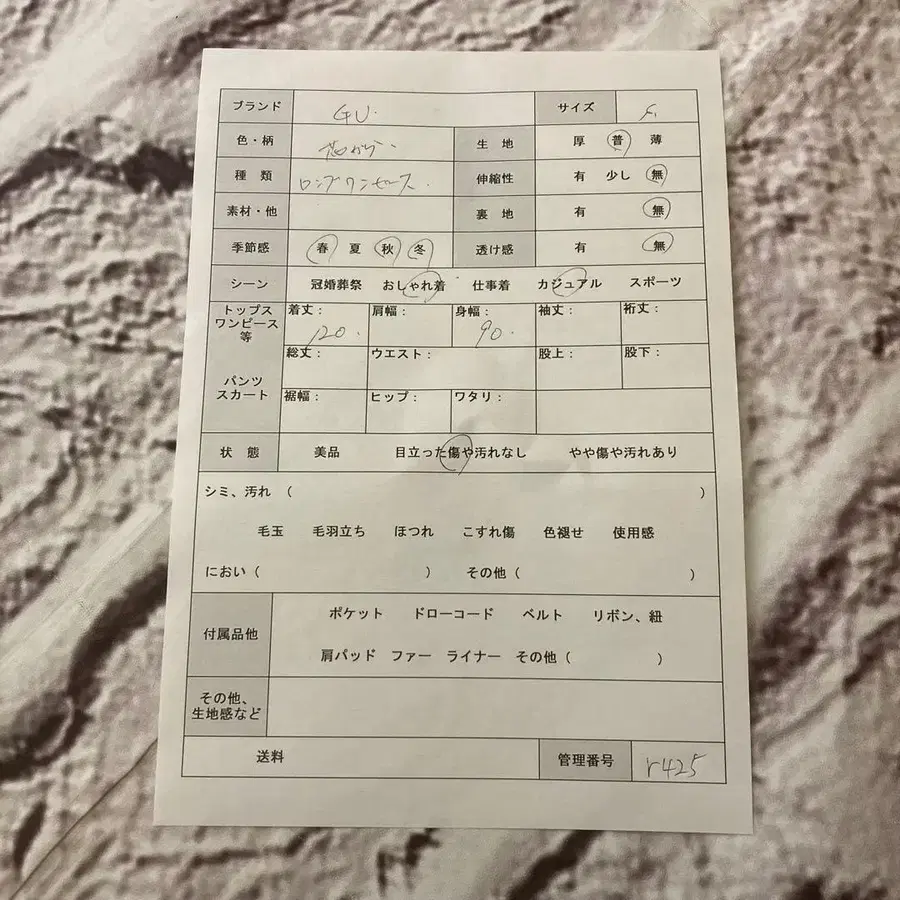 ブランド GU. サイズ F.
色・柄 花がら、 生 地 厚 普 薄
種 類 ロングワンピース. 伸縮性 有 少し 無
素材・他 裏 地 有 無
季節感 春 夏 秋 冬 透け感 有 無
シーン 冠婚葬祭 おしゃれ着 仕事着 カジュアル スポーツ
トップス ワンピース 等 着丈： 120. 肩幅： 身幅： 90. 袖丈： 裄丈：
パンツ スカート 総丈： ウエスト： 股上： 股下：
裾幅： ヒップ： ワタリ：
状 態 美品 目立った傷や汚れなし やや傷や汚れあり
シミ、汚れ （ ）
毛玉 毛羽立ち ほつれ こすれ傷 色褪せ 使用感
におい（ ） その他（ ）
付属品他 ポケット ドローコード ベルト リボン、紐
肩パッド ファー ライナー その他（ ）
その他、
生地感など
送料 管理番号 r425